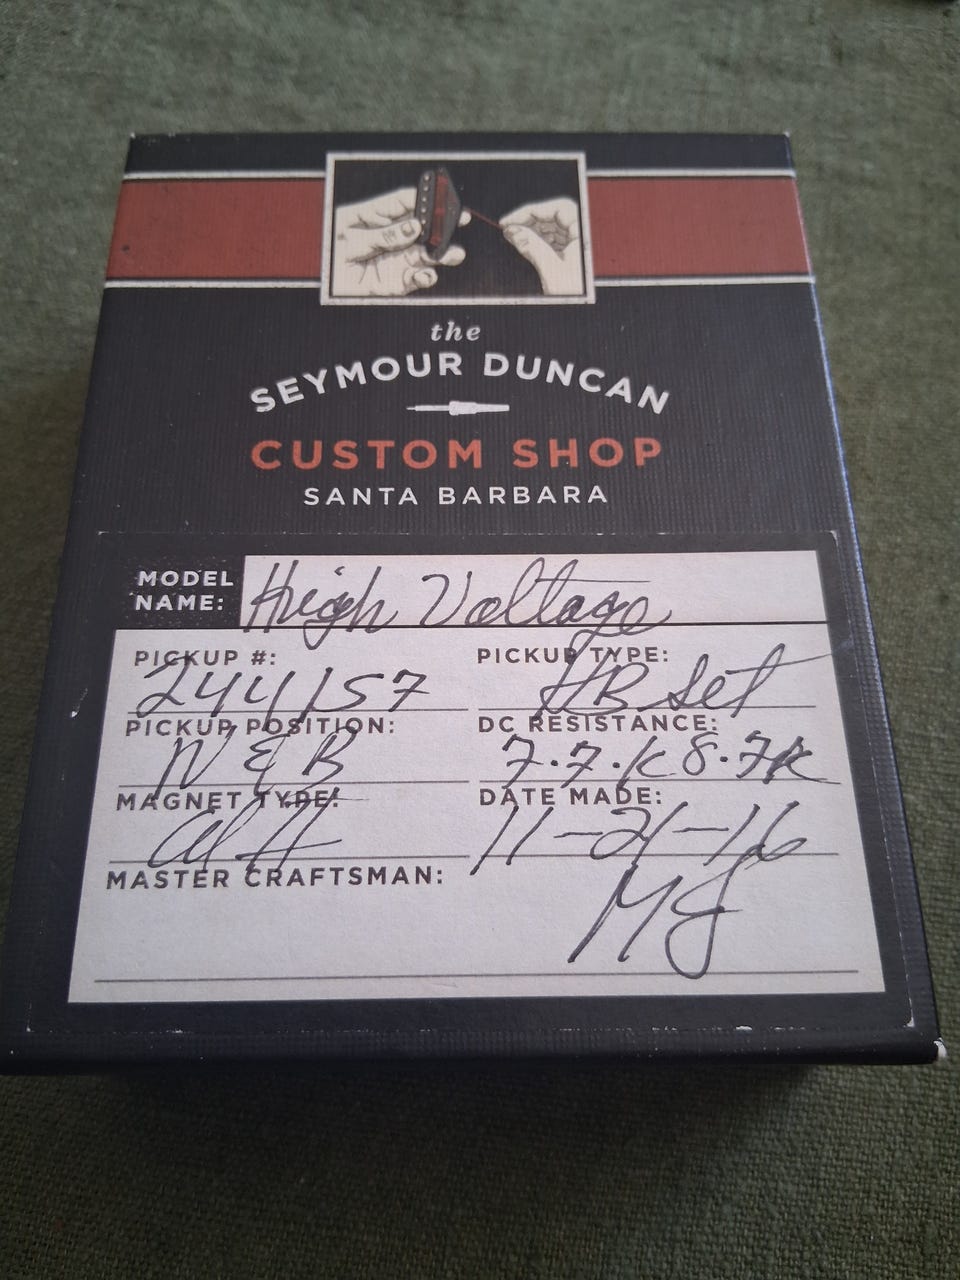 the
SEYMOUR DUNCAN
CUSTOM SHOP
SANTA BARBARA
MODEL NAME: High Voltage
PICKUP #: PICKUP TYPE:
244157 HB Set
PICKUP POSITION: DC RESISTANCE:
N & B 7.7.K 8.7K
MAGNET TYPE: DATE MADE:
11-21-16
MASTER CRAFTSMAN:
MJ